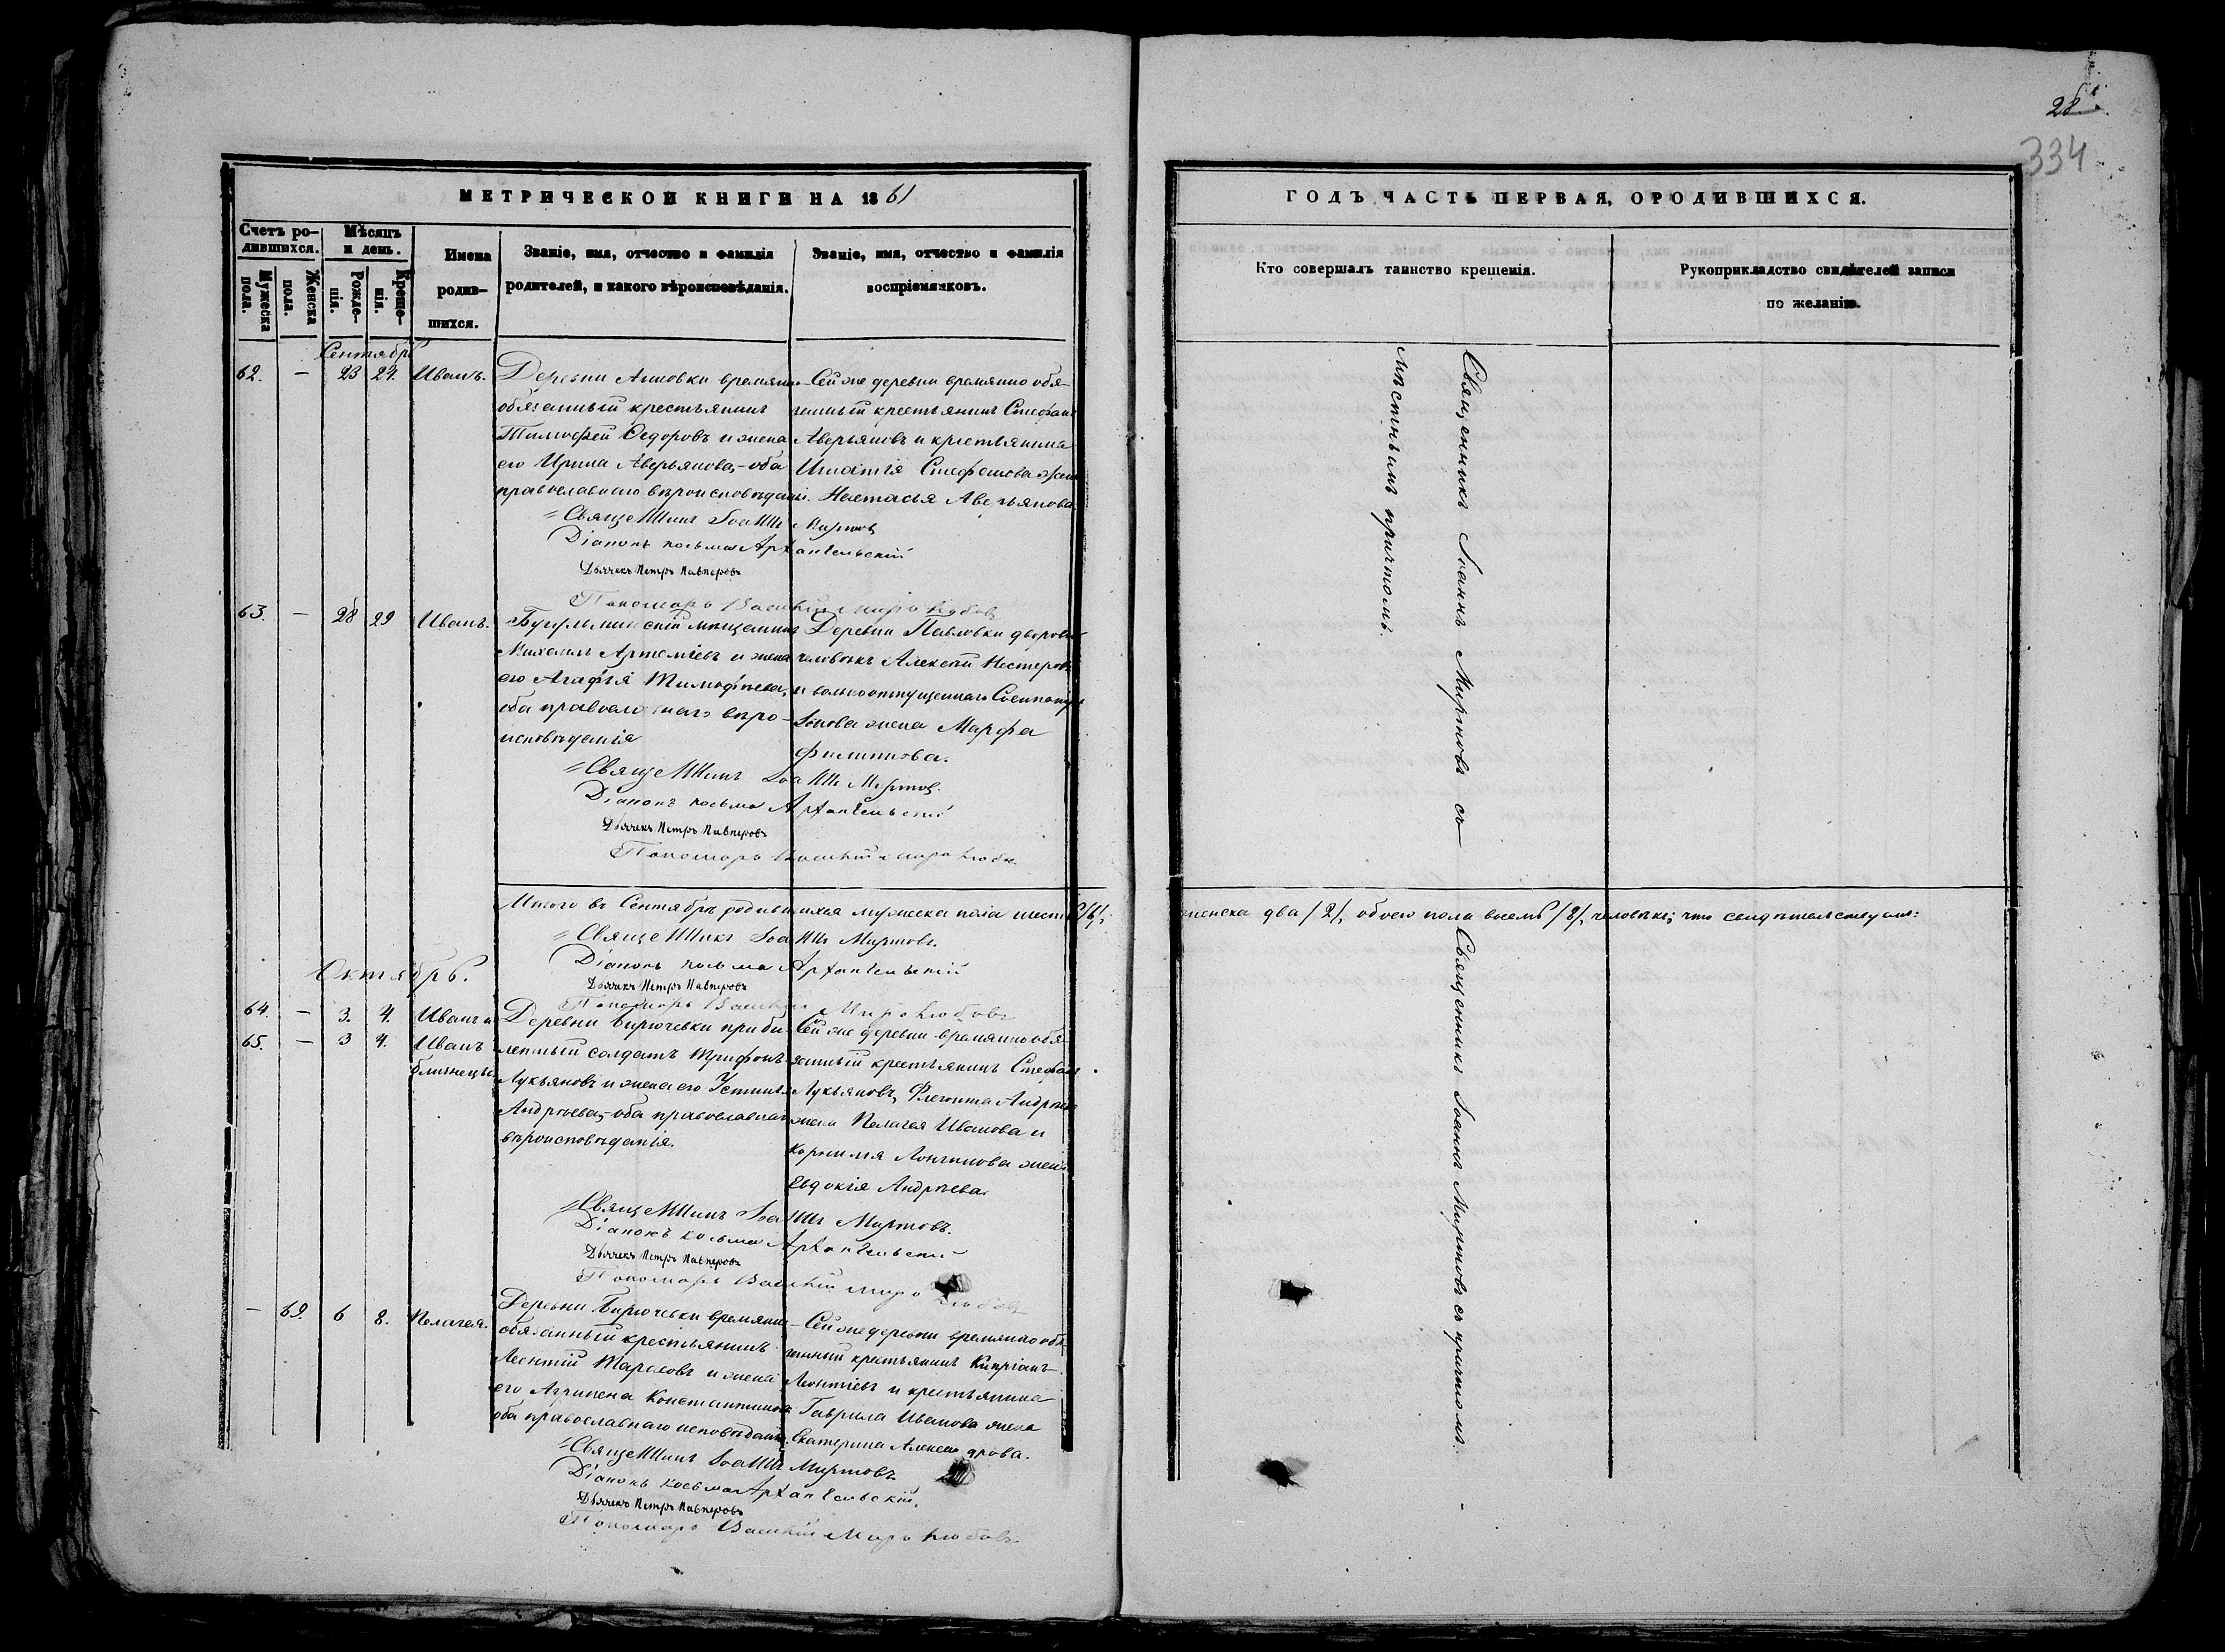 28.
334
МЕТРИЧЕСКОЙ КНИГИ НА 1861
ГОДЪ ЧАСТЬ ПЕРВАЯ, О РОДИВШИХСЯ.
Счетъ ро-
дившихся.
Мужеска
пола.
Женска
пола.
Мѣсяцъ
и день.
Рожде-
нія.
Креще-
нія.
Имена
родив-
шихся.
Званіе, имя, отчество и фамилія
родителей, и какого вѣроисповѣданія.
Званіе, имя, отчество и фамилія
воспріемниковъ.
Кто совершалъ таинство крещенія.
Рукоприкладство свидѣтелей записи
по желанію.
Сентябрь
62. — 23 24. Иванъ.
Деревни временно
обязанный крестьянинъ
Тимофей Ѳедоровъ и жена
его Ирина Аверьянова,-оба
православнаго вѣроисповѣдані.
Сей же деревни временно обя-
занный крестьянинъ Стефанъ
Аверьяновъ и крестьянина
Игнатія Стефанова жена
Настасья Аверьянова
Священникъ Іоаннъ Миртовъ
Діаконъ Косьма Архангельскій
Дьячекъ Петръ Павперовъ
Пономарь Василій Миролюбовъ
63. — 28 29 Иванъ.
Бугульминскій мѣщанинъ
Михаилъ Артеміевъ и жена
его Агафія Тимофѣева,
оба православнаго вѣро-
исповѣданія
Деревни Павловки дворовый
человѣкъ Алексѣй Нестеровъ
и вольноотпущеннаго
жена Марфа
Филиппова.
Священникъ Іоаннъ Миртовъ.
Діаконъ Косьма Архангельскій
Дьячекъ Петръ Павперовъ
Пономарь Василій Миролюбовъ
Итого въ Сентябрѣ родившихся мужеска пола шесть /6/,
женска два /2/, обоего пола восемь /8/, человѣкъ; что свидѣтельствуемъ:
Священникъ Іоаннъ Миртовъ.
Діаконъ Косьма Архангельскій
Дьячекъ Петръ Павперовъ
Пономарь Василій Миролюбовъ
Октябрь.
64. — 3. 4. Иванъ и
65. — 3 4. Иванъ
близнецы
Деревни Бирючевки при би-
летный солдатъ Трифонъ
Лукьяновъ и жена его Устинья
Андрѣева,-оба православнаго
вѣроисповѣданія.
Сей же деревни временно обя-
занный крестьянинъ Стефанъ
Лукьяновъ, Флегонта Андрѣева
жена Пелагея Иванова и
Корнилія Лонгинова жена
Евдокія Андрѣева
Священникъ Іоаннъ Миртовъ.
Діаконъ Косьма Архангельскій
Дьячекъ Петръ Павперовъ
Пономарь Василій Миролюбовъ
— 69. 6 8. Пелагея.
Деревни Бирючевки временно
обязанный крестьянинъ
Леонтій Тарасовъ и жена
его Агрипена Константинова
оба православнаго исповѣданія.
Сей же деревни временно обя-
занный крестьянинъ Кипріанъ
Леонтіевъ и крестьянина
Гаврила Иванова жена
Екатерина Александрова.
Священникъ Іоаннъ Миртовъ
Діаконъ Косьма Архангельскій.
Дьячекъ Петръ Павперовъ
Пономарь Василій Миролюбовъ
Священникъ Іоаннъ Миртовъ съ
мѣстнымъ причтомъ.
Священникъ Іоаннъ Миртовъ съ причтомъ.